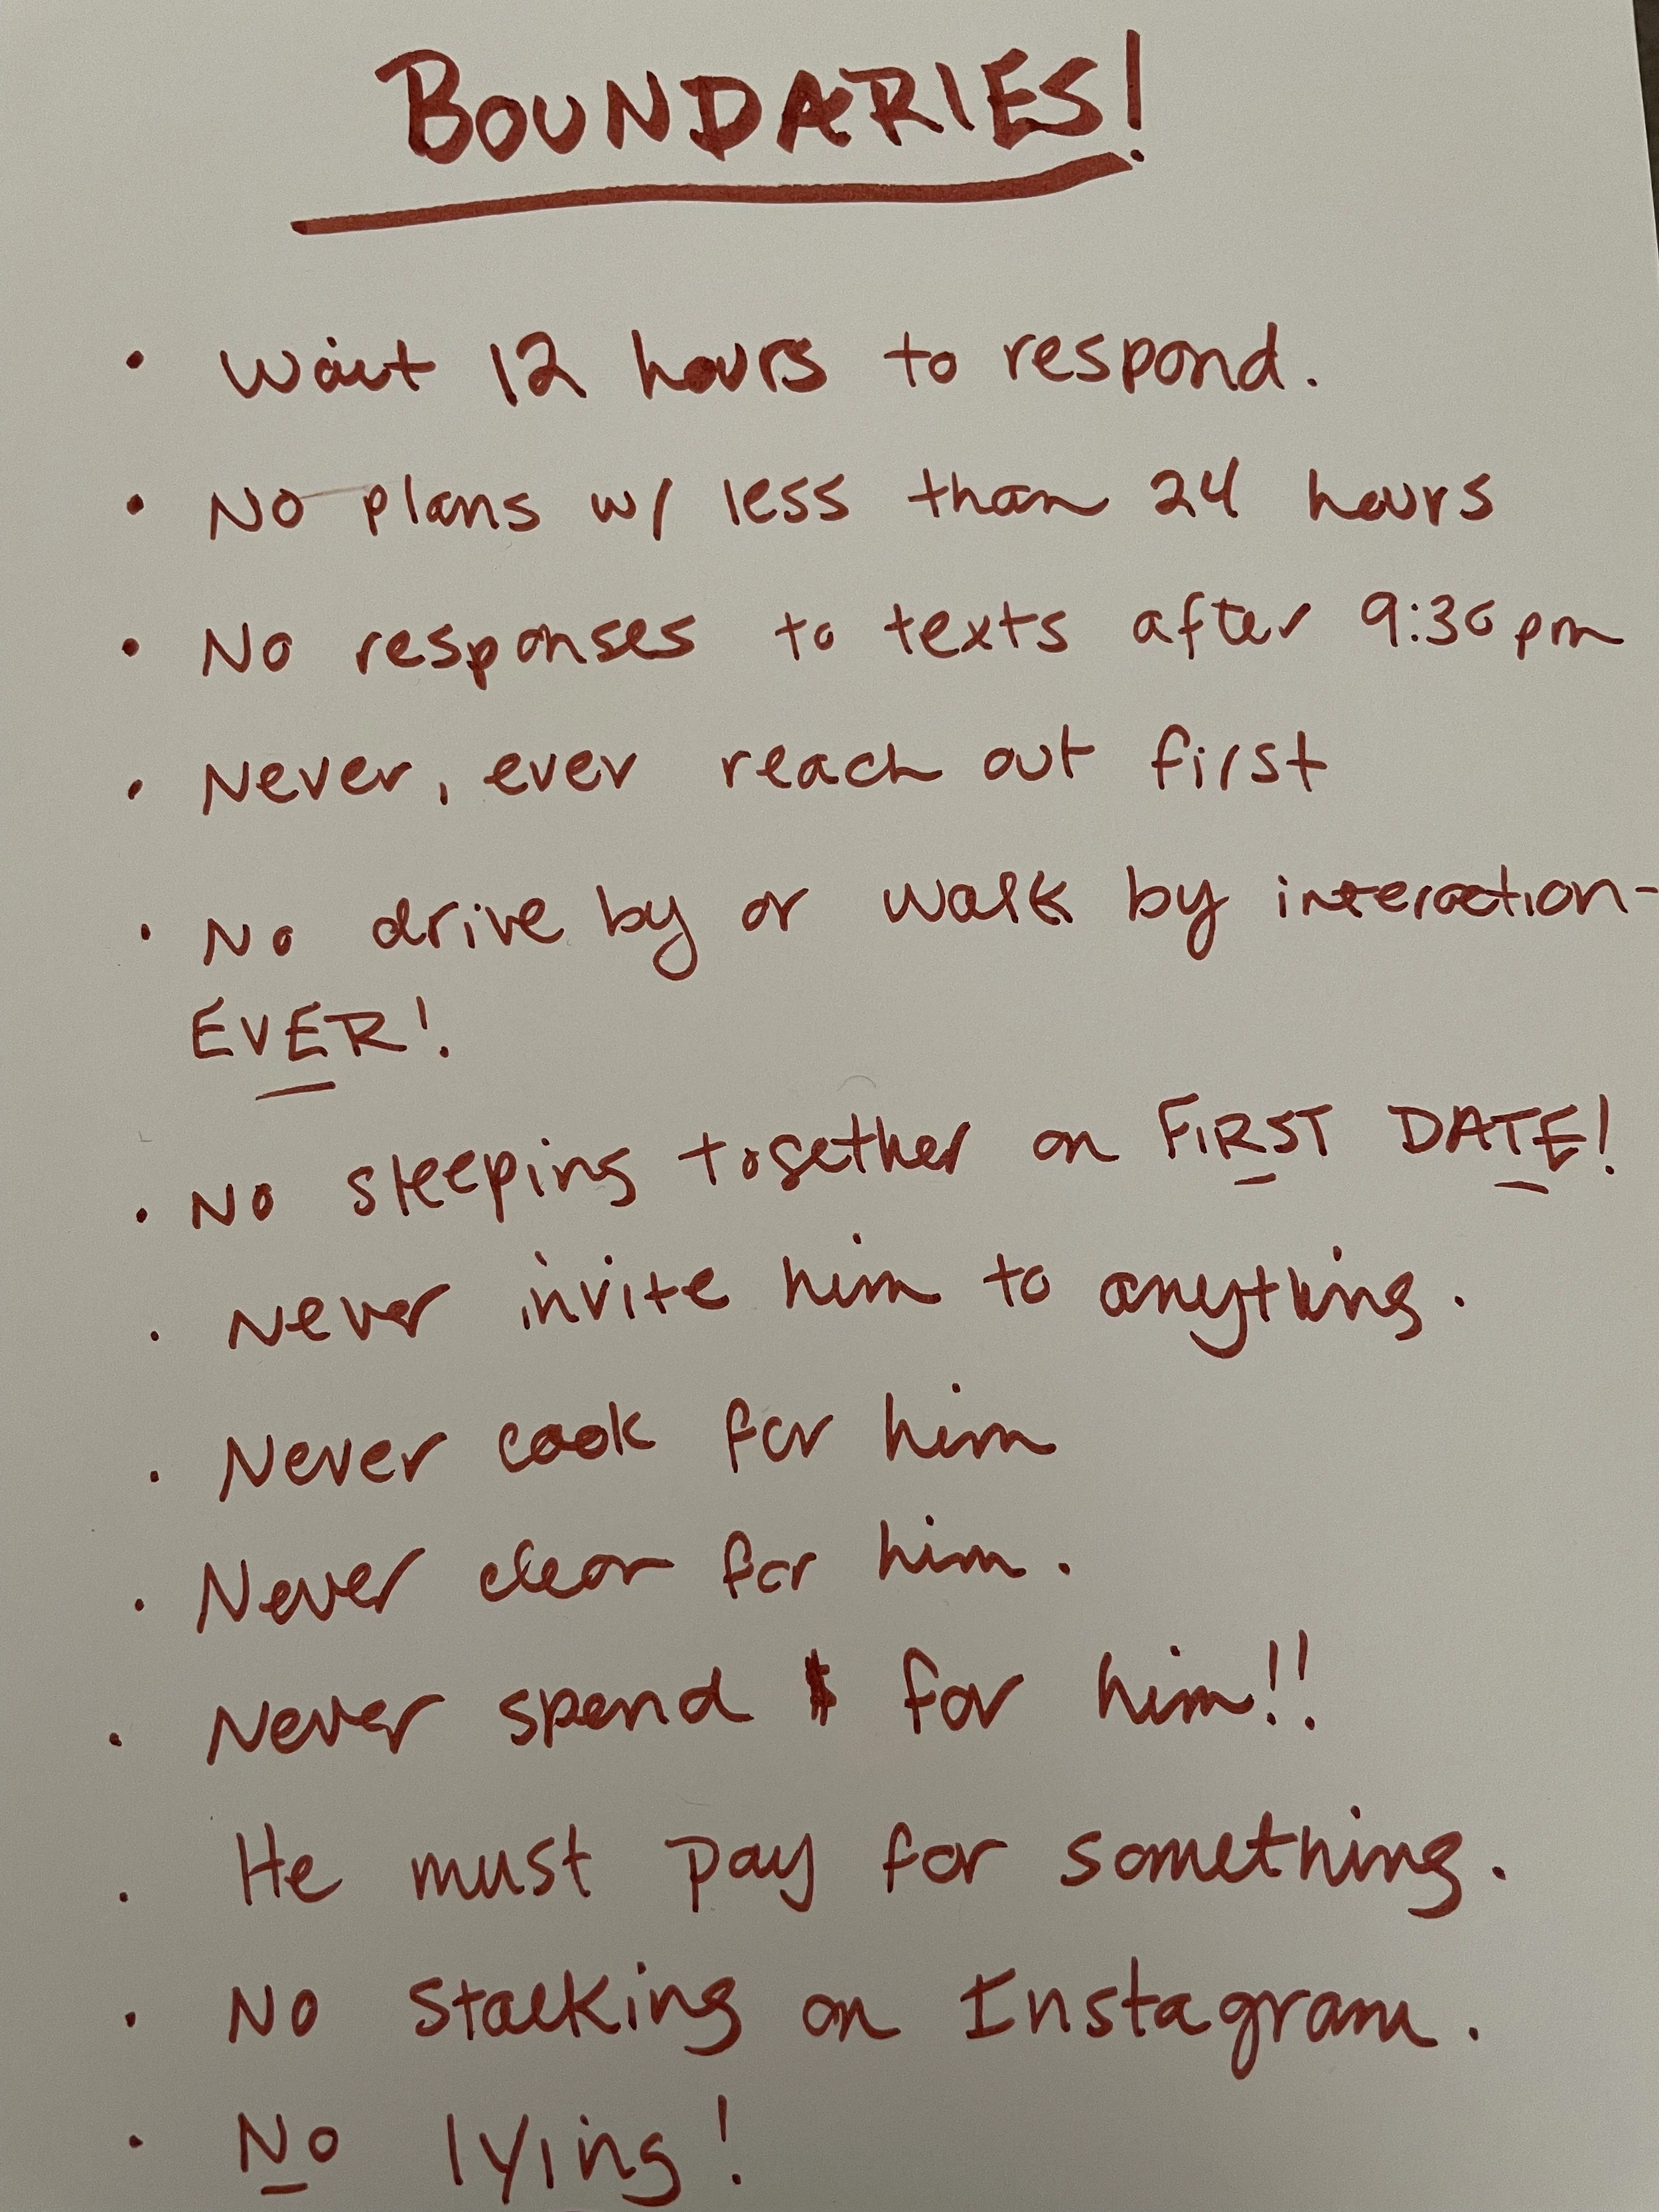 BOUNDARIES!
• Wait 12 hours to respond.
• No plans w/ less than 24 hours
• No responses to texts after 9:30pm
• Never, ever reach out first
• No drive by or walk by interaction-
EVER!
• No sleeping together on FIRST DATE!
• Never invite him to anything.
• Never cook for him
• Never clean for him.
• Never spend $ for him!!
• He must pay for something.
• No stalking on Instagram.
• No lying!